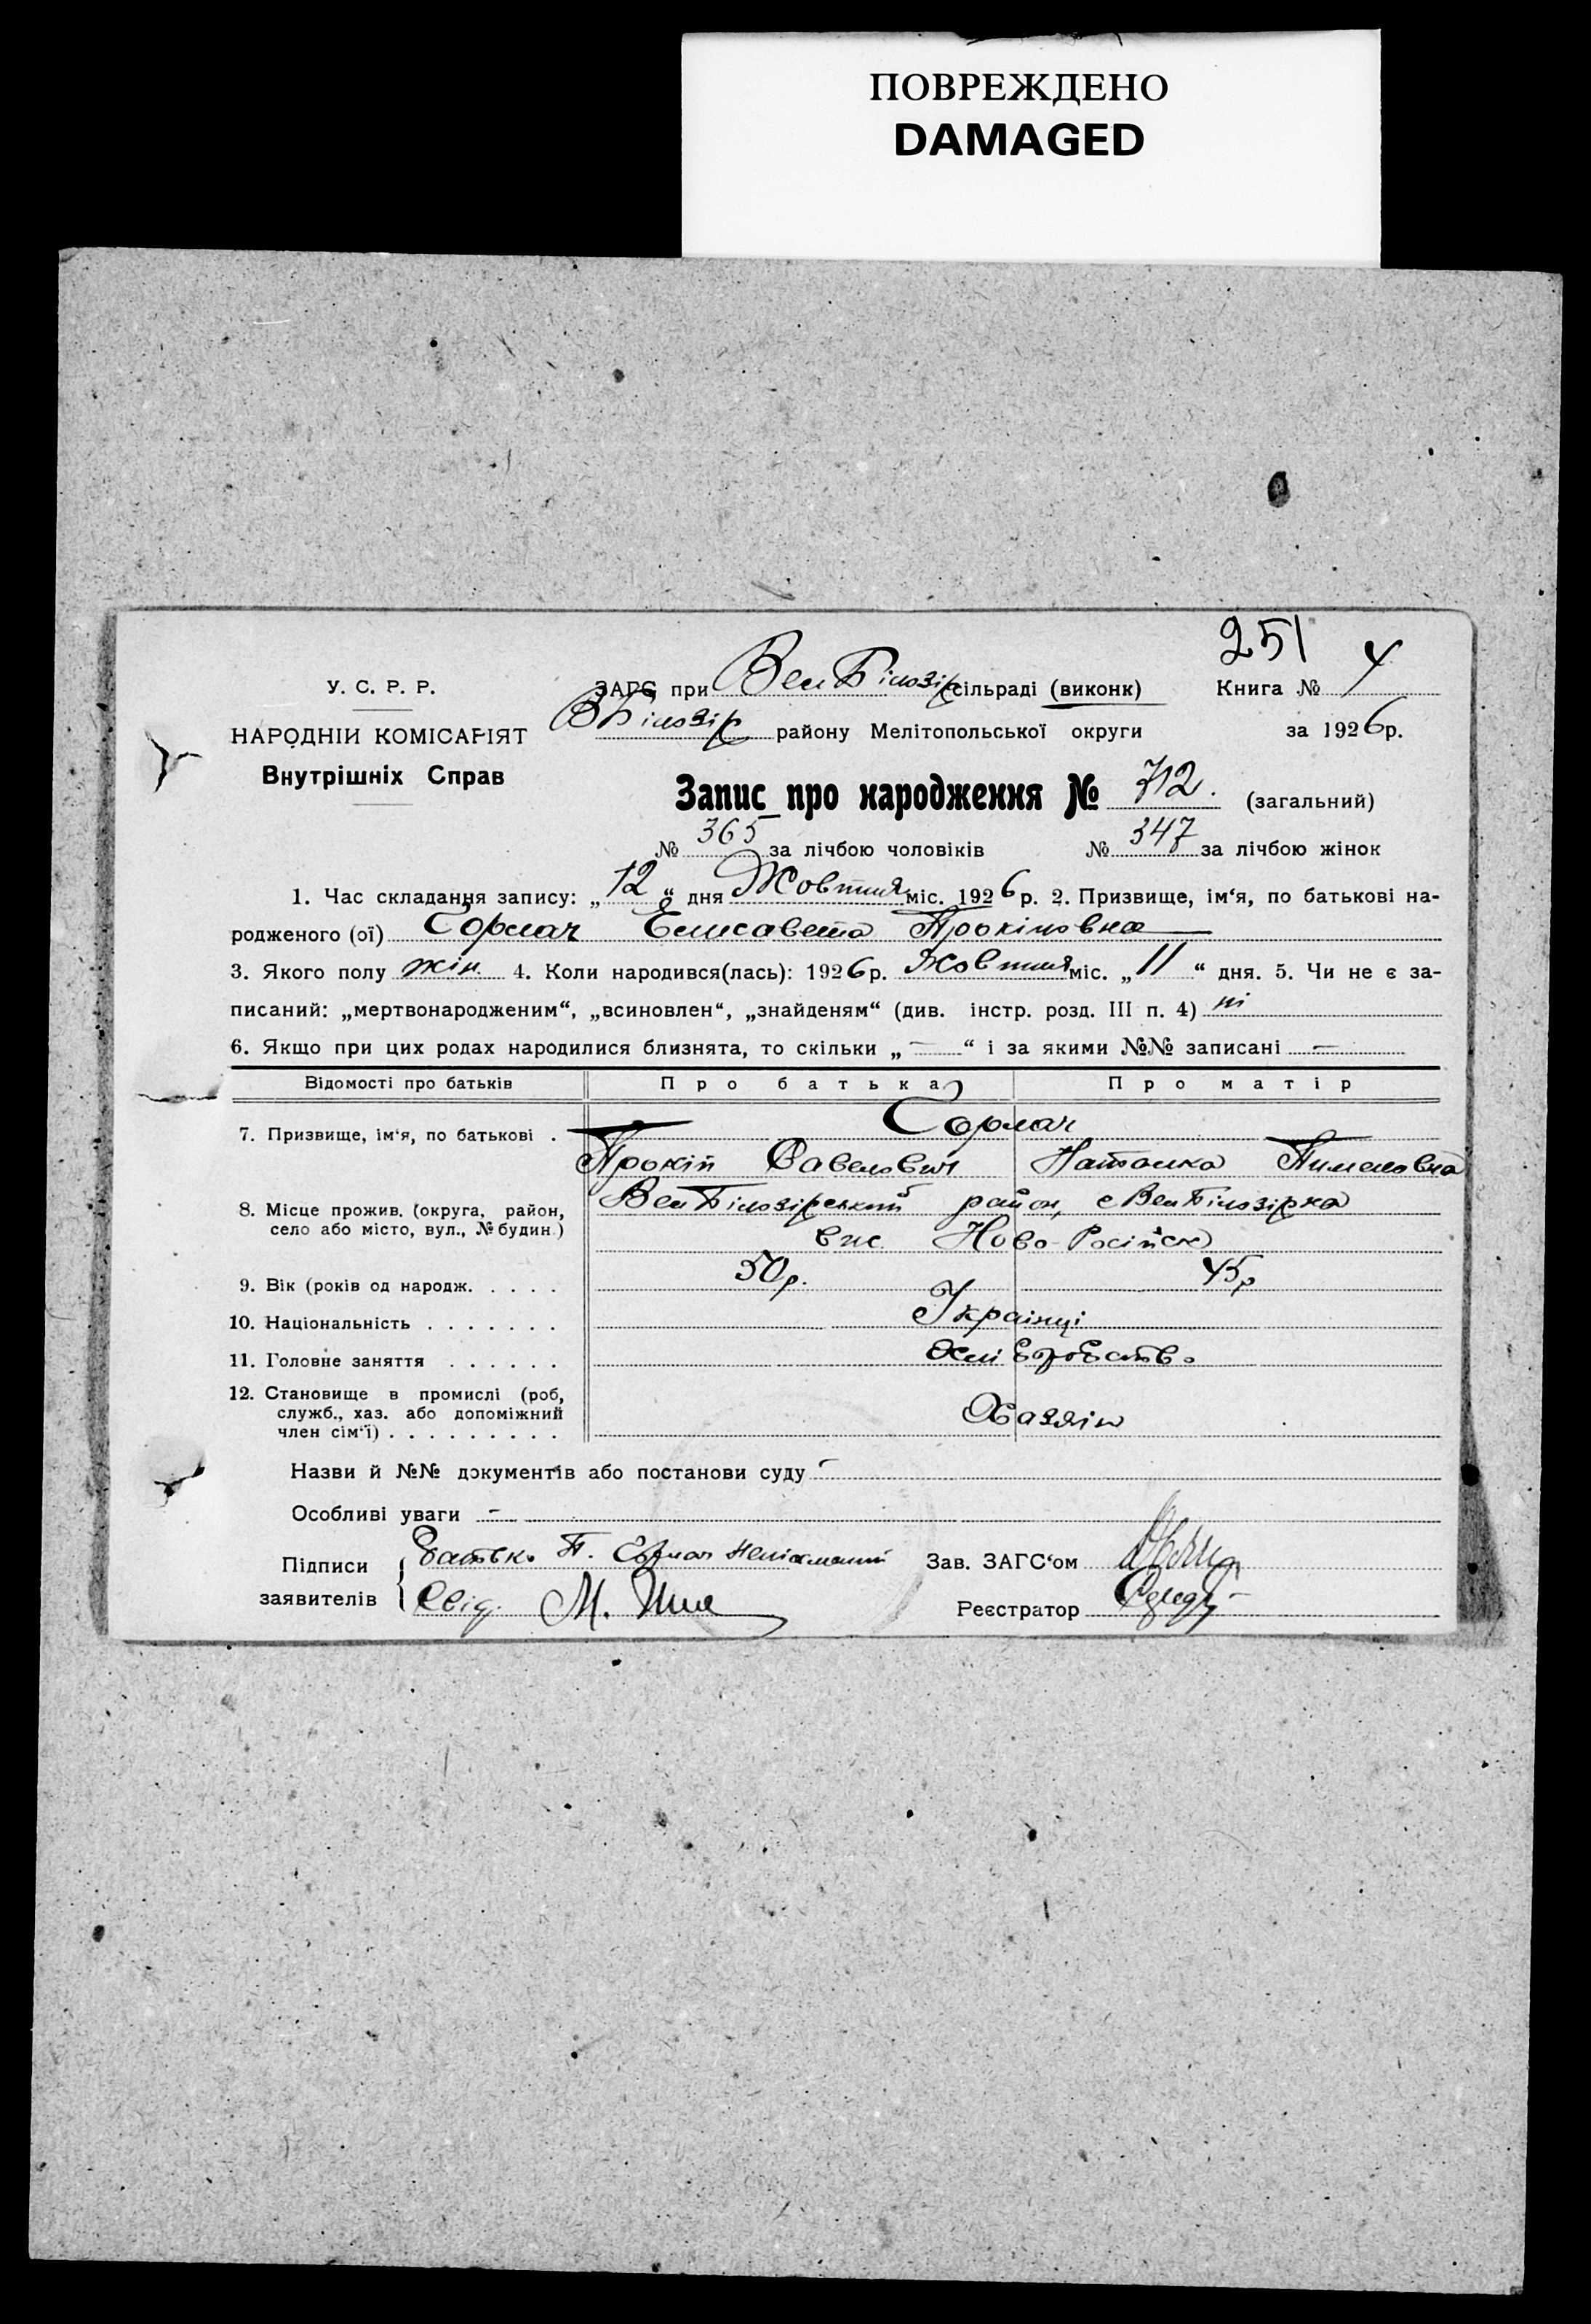 ПОВРЕЖДЕНО
DAMAGED
251
У. С. Р. Р.
НАРОДНІЙ КОМІСАРІЯТ
Внутрішніх Справ
ЗАГС при Вел Білозір сільраді (виконк) Книга № 4
ВБілозір району Мелітопольської округи за 1926р.
Запис про народження № 712. (загальний)
№ 365 за лічбою чоловіків № 347 за лічбою жінок
1. Час складання запису: „12“ дня Жовтня міс. 1926 р. 2. Призвище, ім‘я, по батькові на-
родженого (ої) Горлач Елисавета Прокіповна
3. Якого полу жін. 4. Коли народився(лась): 1926р. Жовтня міс. „11“ дня. 5. Чи не є за-
писаний: „мертвонародженим“, „всиновлен“, „знайденям“ (див. інстр. розд. III п. 4) ні
6. Якщо при цих родах народилися близнята, то скільки „—“ і за якими №№ записані —
Відомості про батьків Про батька Про матір
7. Призвище, ім‘я, по батькові . Горлач
Прокіп Савелович Наталка Пименовна
8. Місце прожив. (округа, район, село або місто, вул., № будин.) Вел Білозірський район, с Вел Білозірка
вис. Ново-Російск
9. Вік (років од народж. . . . . 50р. 45р
10. Національність . . . . . . . Українці
11. Головне заняття . . . . . . Хліборобство
12. Становище в промислі (роб, служб., хаз. або допоміжний член сім‘ї) . . . . . . . . . Хазяін
Назви й №№ документів або постанови суду -
Особливі уваги -
Підписи заявителів Батько П. Горлач неписьменний Зав. ЗАГС‘ом
Свід. М. Реєстратор